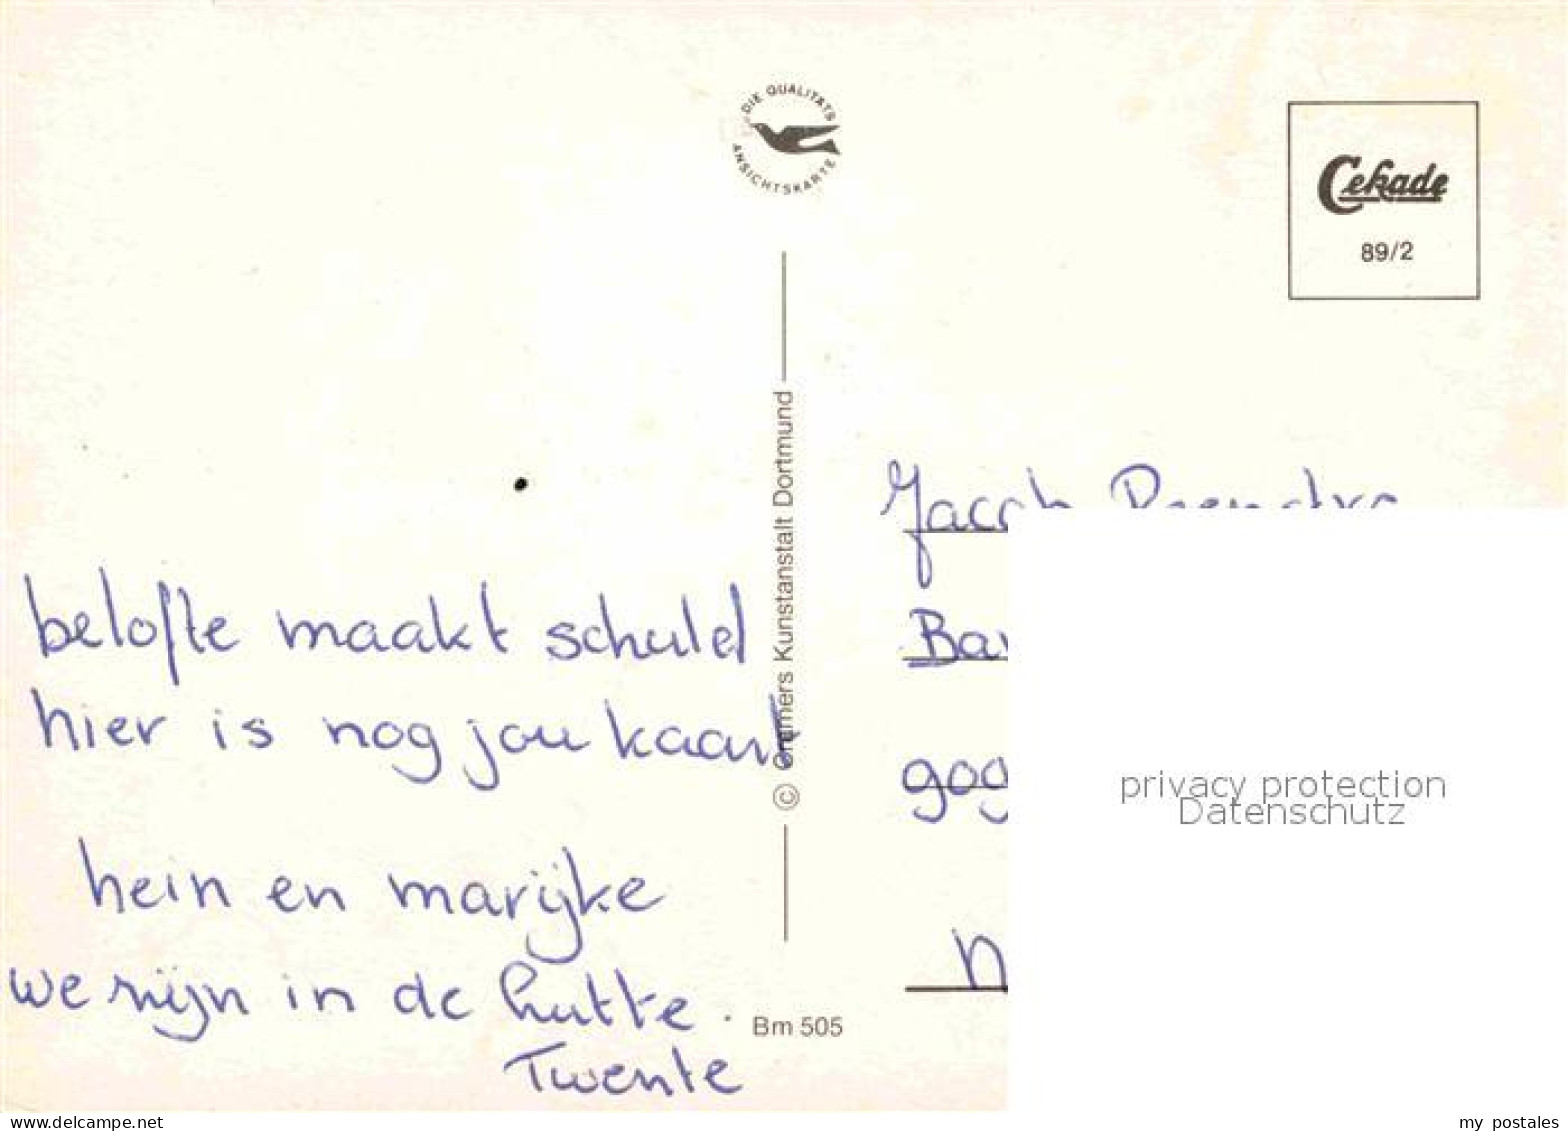 DIE QUALITÄTS
ANSICHTSKARTE
Cekade
89/2
© Cramers Kunstanstalt Dortmund
Jacob
belofte maakt schuld
hier is nog jou kaart
hein en marijke
we zijn in de hutte.
Twente
Bm 505
privacy protection
Datenschutz
my postales
delcampe.net